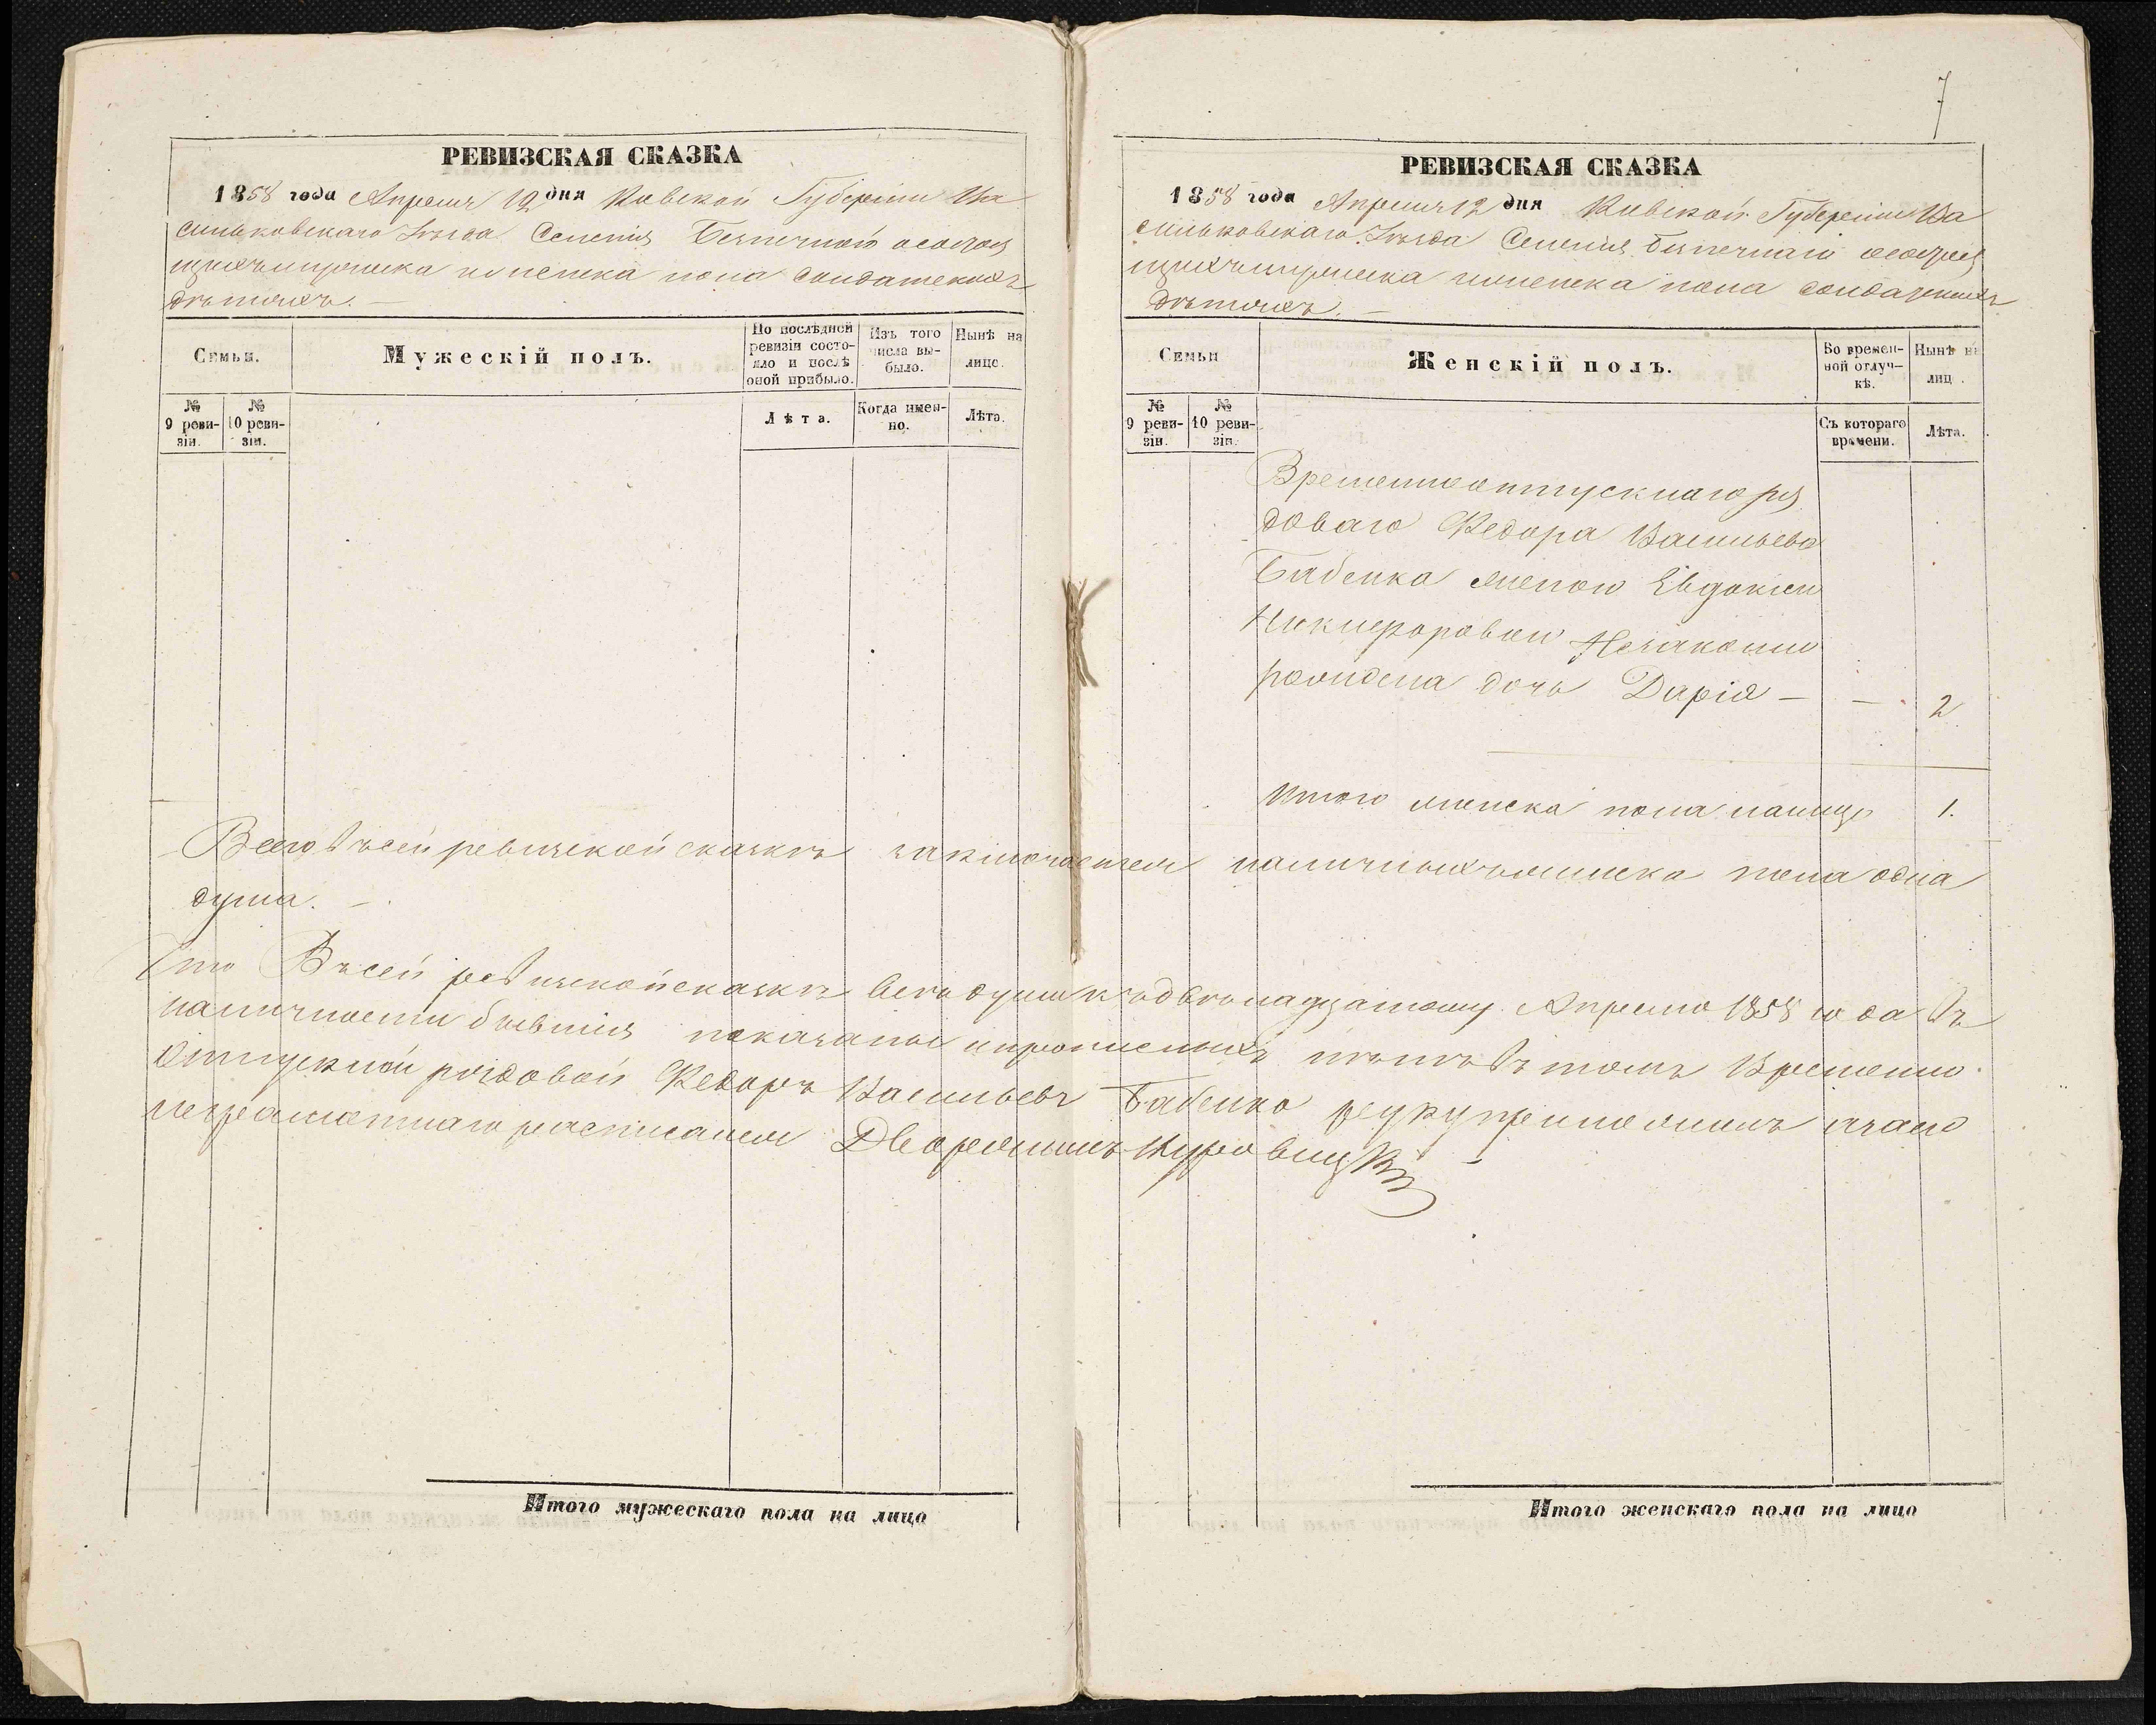 РЕВИЗСКАЯ СКАЗКА
1858 года Апреля 12 дня Киевской Губернии Ва
сильковскаго Уѣзда Селенія Безпечной осостоя
щихъ мужеска и женска пола солдатскихъ
дѣтяхъ. —
Семьи.
Мужескій полъ.
По послѣдней ревизіи состо-
яло и послѣ оной прибыло.
Изъ того числа вы-
было.
Нынѣ на лице.
№ 9 реви-
зіи.
№ 10 реви-
зіи.
Лѣта.
Когда имен-
но.
Лѣта.
7
РЕВИЗСКАЯ СКАЗКА
1858 года Апреля 12 дня Киевской Губерніи Ва
сильковскаго Уѣзда Селенія Безпечной осостоя
щихъ мужеска и женска пола солдатскихъ
дѣтяхъ. —
Семьи
Женскій полъ.
Во времен-
ной отлуч-
кѣ.
Нынѣ на лиц .
№ 9 реви-
зіи.
№ 10 реви-
зіи.
Съ котораго времени.
Лѣта.
Временноотпускнаго ря
доваго Федора Васильева
Бабенка женою Евдокіею
Никифоровою Незаконно
рождена дочь Дарія — — 2
Итого женска пола налице 1.
Всего в сей ревизской сказкѣ заключается наличныхъ женска пола одна
душа. —
Что Въ сей ревизской сказкѣ всѣ души къ двенадцатому Апрелю 1858 года въ
наличности бывшія показаны и прописныхъ нѣтъ въ томъ Временно
отпускной рядовой Федоръ Васильевъ Бабенко рукуприложилъ азаего
неграмотнаго росписался Дворянинъ
Итого мужескаго пола на лицо
Итого женскаго пола на лицо